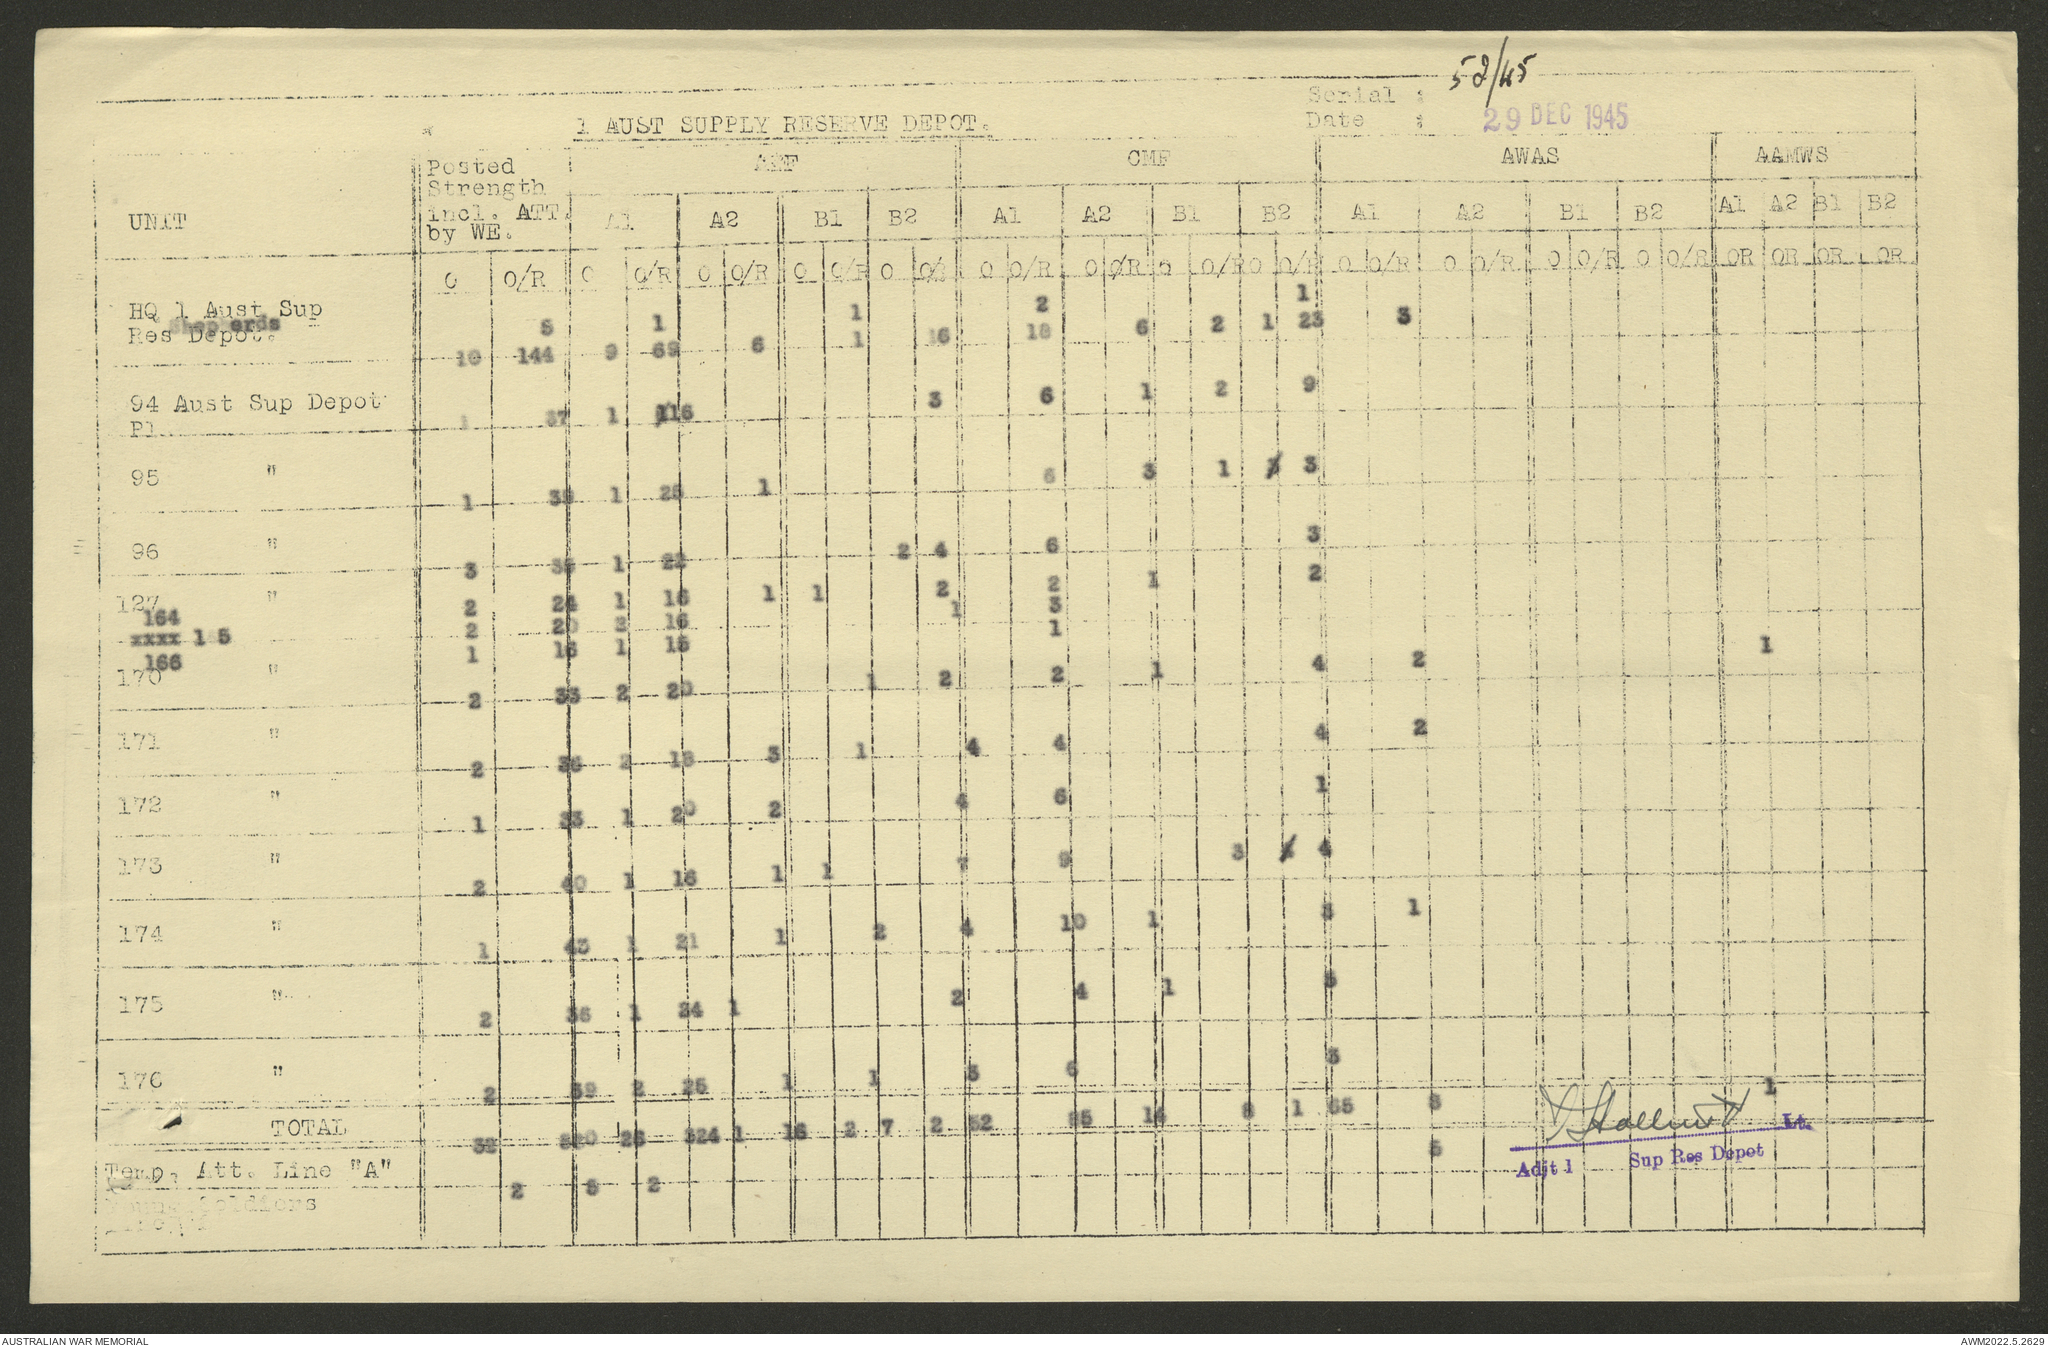 52/45
Serial :
Date : 29 DEC 1945
1 AUST SUPPLY RESERVE DEPOT.
UNIT Posted Strength incl. ATT. by WE. AIF CMF AWAS AAMWS
A1 A2 B1 B2 A1 A2 B1 B2 A1 A2 B1 B2 A1 A2 B1 B2
O O/R O O/R O O/R O O/R O O/R O O/R O O/R O O/R O O/R O O/R O O/R O O/R O O/R OR OR OR OR
HQ 1 Aust Sup
Shepherds 1 1 2 1
Res Depot. 10 144 9 69 6 1 16 18 6 2 1 23 3
94 Aust Sup Depot Pl. 1 37 1 16 3 6 1 2 9
95 " 1 1 25 1 6 3 1 3
96 " 3 1 22 2 4 6 3
127 " 2 24 1 16 1 1 2 2 1 2
164 2 20 2 16 1 3
xxxx 1 5 1 16 1 15 1
166
170 " 2 33 2 20 1 2 2 1 4 2 1
171 " 2 36 2 18 3 1 4 4 4 2
172 " 1 33 1 20 2 4 6 1
173 " 2 40 1 16 1 1 7 9 3 4
174 " 1 43 1 21 1 2 4 10 1 3 1
175 " 2 36 1 24 1 2 4 1 5
176 " 2 39 2 25 1 1 3 6 3
TOTAL 32 26 324 1 16 2 7 2 52 85 14 8 1 65 8 1
Temp. Att. Line "A" 2 8 2 5
Soldiers
Lt.
Adjt 1 Sup Res Depot
AUSTRALIAN WAR MEMORIAL
AWM2022.5.2629